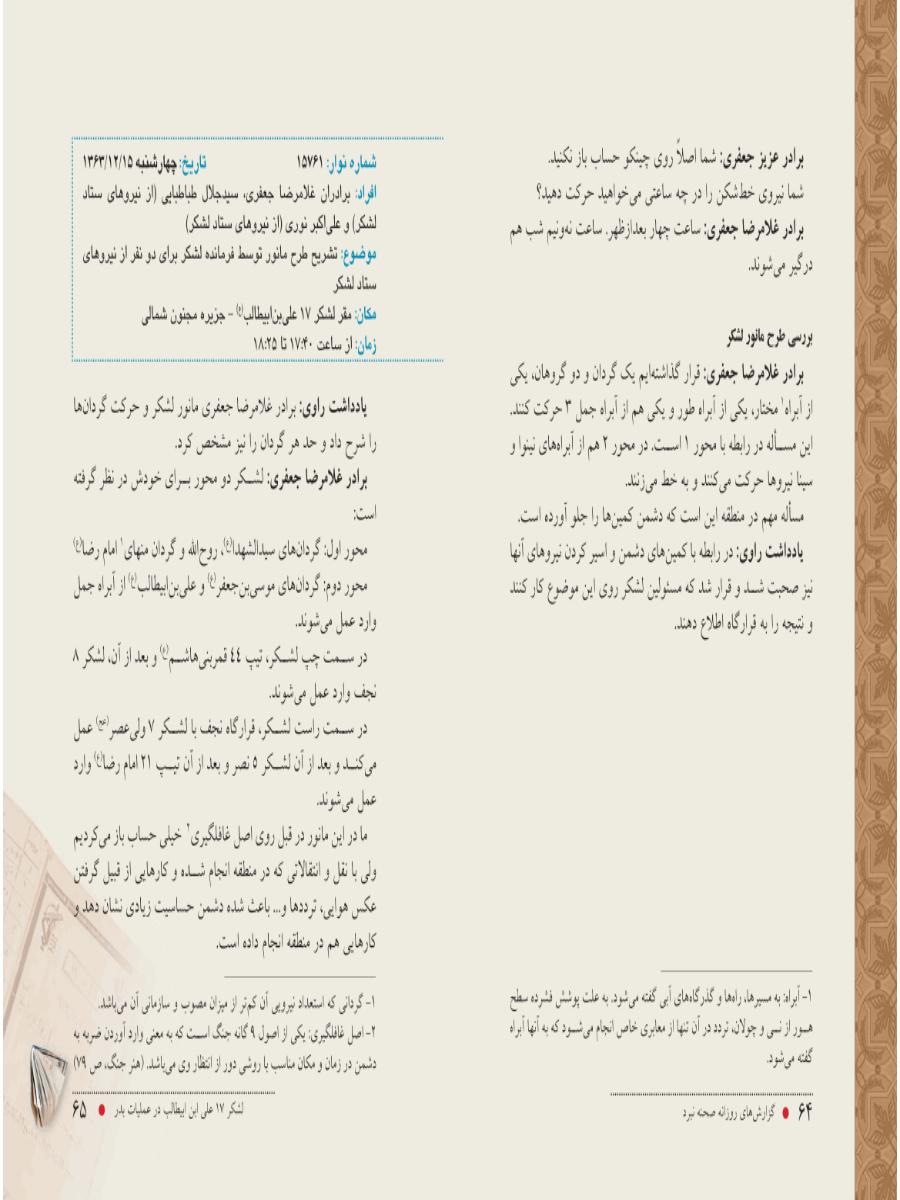 برادر عزیز جعفری: شما اصلاً روی چینکو حساب باز نکنید.
شما نیروی خط‌شکن را در چه ساعتی می‌خواهید حرکت دهید؟
برادر غلامرضا جعفری: ساعت چهار بعدازظهر. ساعت نه‌ونیم شب هم
درگیر می‌شوند.
بررسی طرح مانور لشکر
برادر غلامرضا جعفری: قرار گذاشته‌ایم یک گردان و دو گروهان، یکی
از آبراه۱ مختار، یکی از آبراه طور و یکی هم از آبراه جمل ۳ حرکت کنند.
این مسأله در رابطه با محور ۱ است. در محور ۲ هم از آبراه‌های نینوا و
سینا نیروها حرکت می‌کنند و به خط می‌زنند.
مسأله مهم در منطقه این است که دشمن کمین‌ها را جلو آورده است.
یادداشت راوی: در رابطه با کمین‌های دشمن و اسیر کردن نیروهای آنها
نیز صحبت شد و قرار شد که مسئولین لشکر روی این موضوع کار کنند
و نتیجه را به قرارگاه اطلاع دهند.
۱- آبراه: به مسیرها، راه‌ها و گذرگاه‌های آبی گفته می‌شود. به علت پوشش فشرده سطح
هور از نسی و چولان، تردد در آن تنها از معابری خاص انجام می‌شود که به آنها آبراه
گفته می‌شود.
۶۴ ● گزارش‌های روزانه صحنه نبرد
شماره نوار: ۱۵۷۶۱ تاریخ: چهارشنبه ۱۳۶۳/۱۲/۱۵
افراد: برادران غلامرضا جعفری، سیدجلال طباطبایی (از نیروهای ستاد
لشکر) و علی‌اکبر نوری (از نیروهای ستاد لشکر)
موضوع: تشریح طرح مانور توسط فرمانده لشکر برای دو نفر از نیروهای
ستاد لشکر
مکان: مقر لشکر ۱۷ علی‌بن‌ابیطالب(ع) - جزیره مجنون شمالی
زمان: از ساعت ۱۷:۴۰ تا ۱۸:۲۵
یادداشت راوی: برادر غلامرضا جعفری مانور لشکر و حرکت گردان‌ها
را شرح داد و حد هر گردان را نیز مشخص کرد.
برادر غلامرضا جعفری: لشکر دو محور برای خودش در نظر گرفته
است:
محور اول: گردان‌های سیدالشهدا(ع)، روح‌الله و گردان منهای۱ امام رضا(ع)
محور دوم: گردان‌های موسی‌بن‌جعفر(ع) و علی‌بن‌ابیطالب(ع) از آبراه جمل
وارد عمل می‌شوند.
در سمت چپ لشکر، تیپ ۴۴ قمربنی‌هاشم(ع) و بعد از آن، لشکر ۸
نجف وارد عمل می‌شوند.
در سمت راست لشکر، قرارگاه نجف با لشکر ۷ ولی‌عصر(عج) عمل
می‌کند و بعد از آن لشکر ۵ نصر و بعد از آن تیپ ۲۱ امام رضا(ع) وارد
عمل می‌شوند.
ما در این مانور در قبل روی اصل غافلگیری۲ خیلی حساب باز می‌کردیم
ولی با نقل و انتقالاتی که در منطقه انجام شده و کارهایی از قبیل گرفتن
عکس هوایی، ترددها و... باعث شده دشمن حساسیت زیادی نشان دهد و
کارهایی هم در منطقه انجام داده است.
۱- گردانی که استعداد نیرویی آن کم‌تر از میزان مصوب و سازمانی آن می‌باشد.
۲- اصل غافلگیری: یکی از اصول ۹ گانه جنگ است که به معنی وارد آوردن ضربه به
دشمن در زمان و مکان مناسب با روشی دور از انتظار وی می‌باشد. (هنر جنگ، ص ۷۹)
لشکر ۱۷ علی ابن ابیطالب در عملیات بدر ● ۶۵